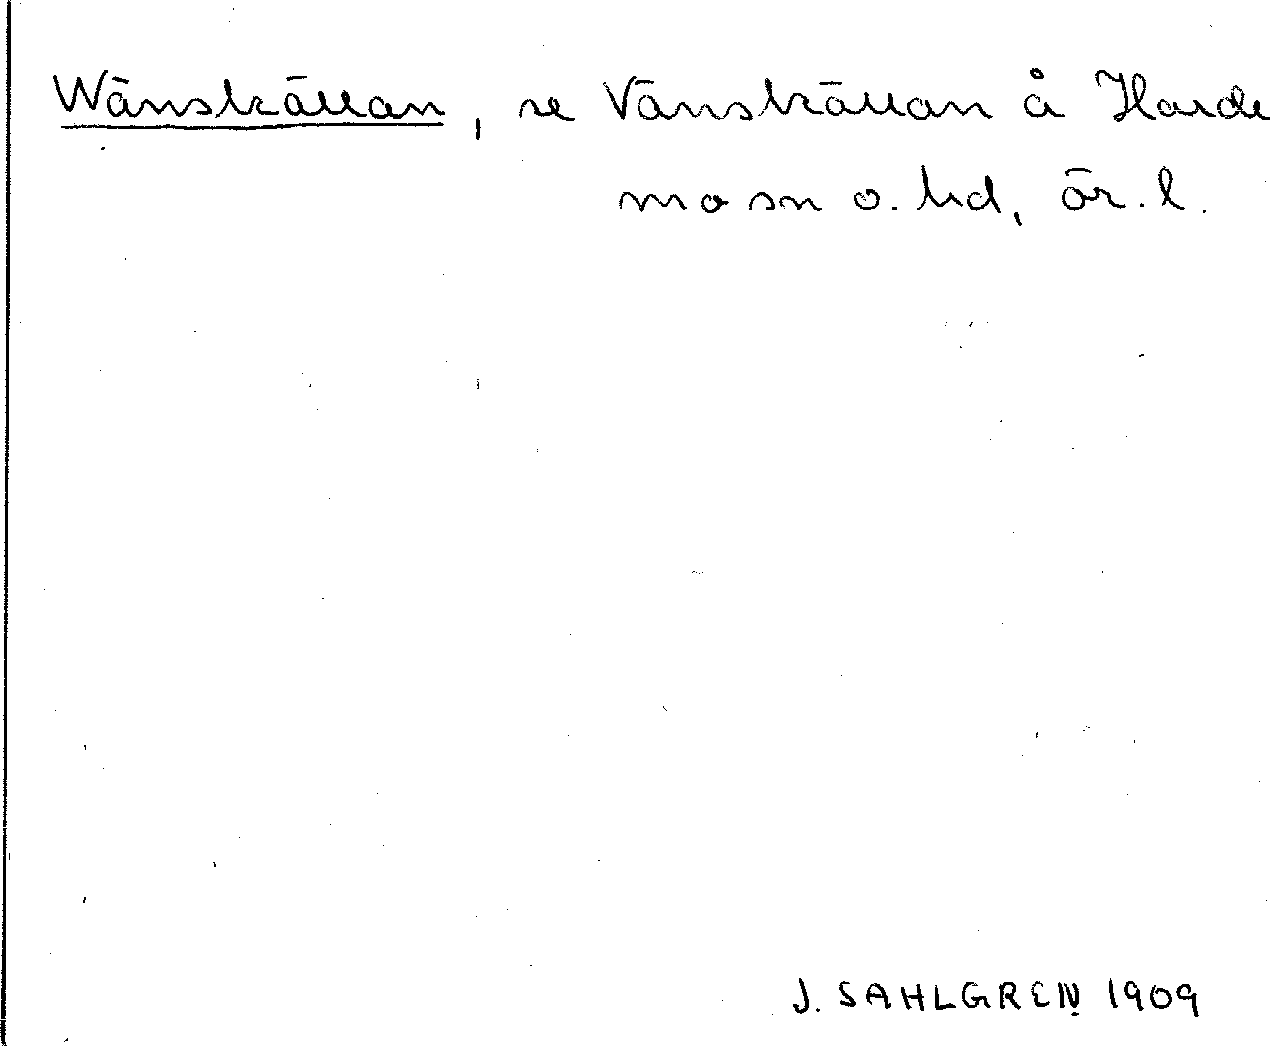 Wänskällan, se Vänskällan å Harde
mo sn o. hd, Ör. l.
J. SAHLGREN 1909